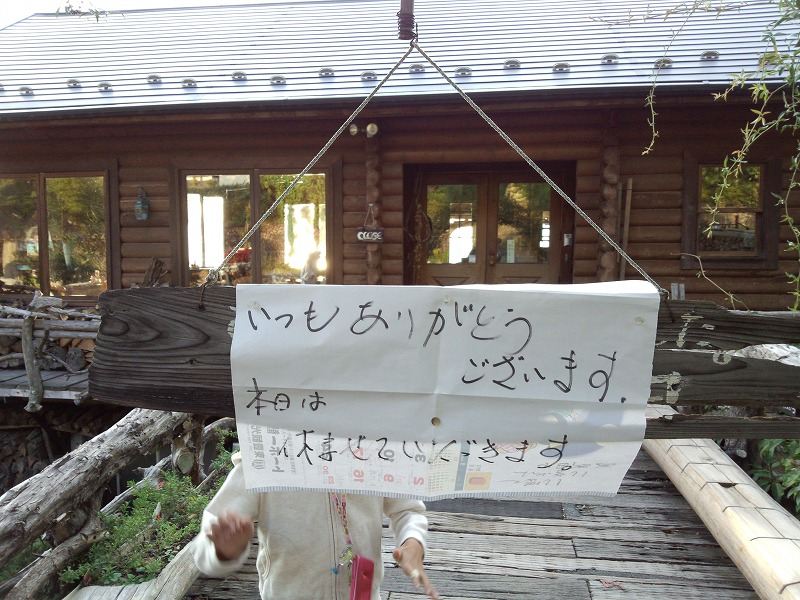 CLOSE
いつもありがとう
ございます.
本日は
休ませていただきます